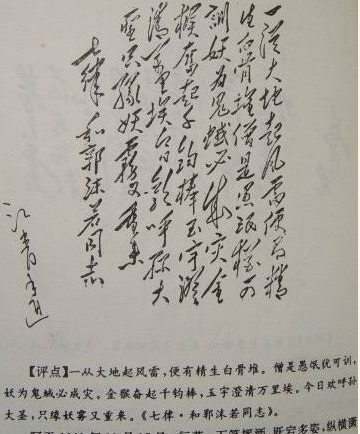 一从大地起风雷便有精
生白骨堆僧是愚氓犹可
训妖为鬼蜮必成灾金
猴奋起千钧棒玉宇澄
清万里埃今日欢呼孙大
圣只缘妖雾又重来
七律 和郭沫若同志
江青
【评点】一从大地起风雷，便有精生白骨堆。僧是愚氓犹可训，
妖为鬼蜮必成灾。金猴奋起千钧棒，玉宇澄清万里埃。今日欢呼孙
大圣，只缘妖雾又重来。《七律·和郭沫若同志》。